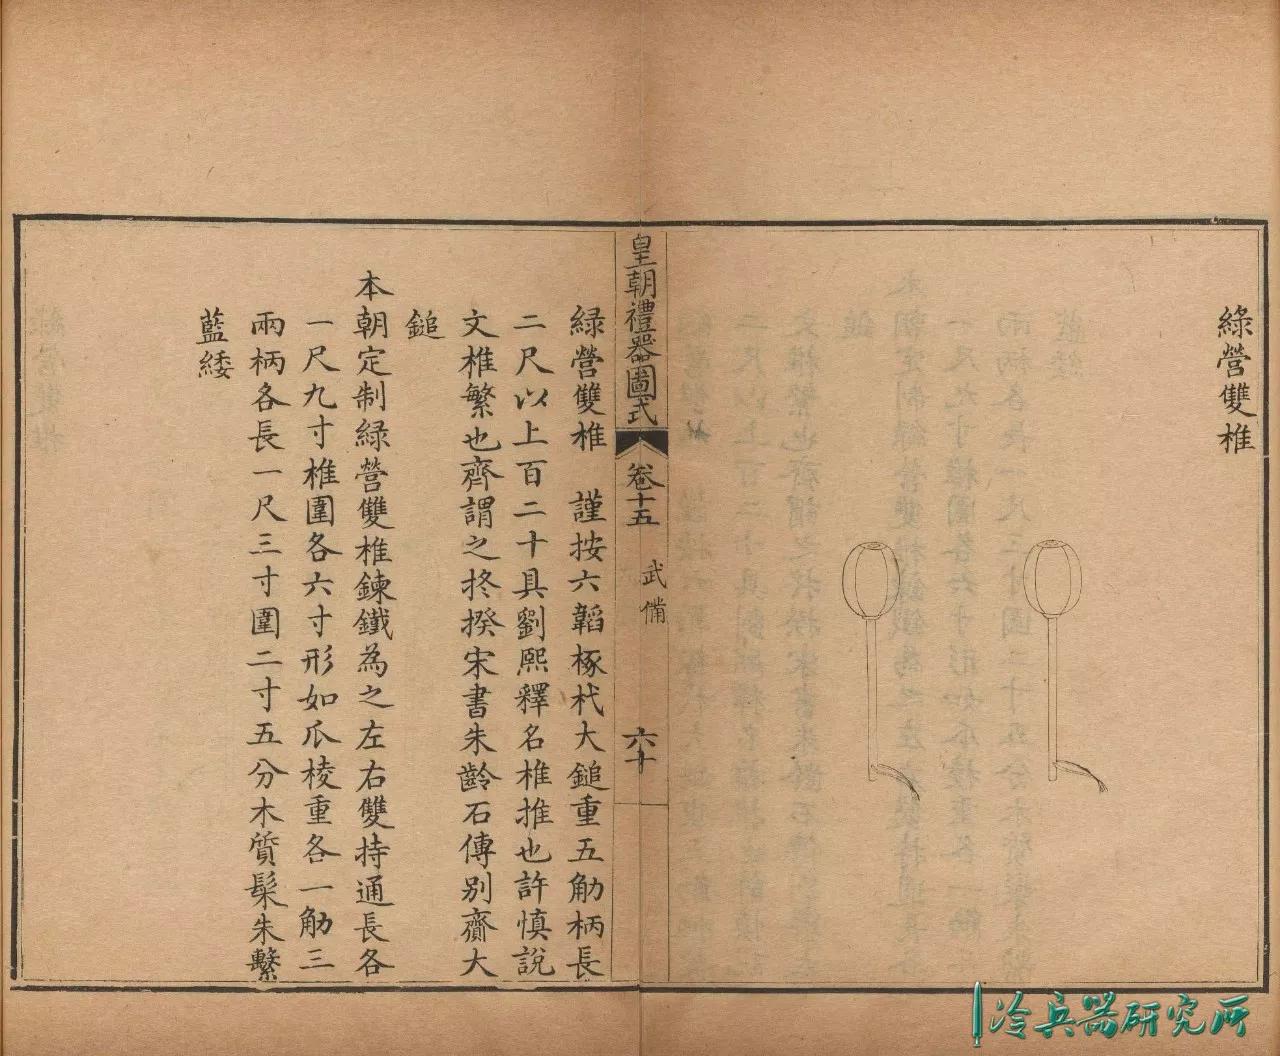 綠營雙椎
皇朝禮器圖式
卷十五
武備
六十
綠營雙椎 謹按六韜椓杙大鎚重五觔柄長
二尺以上百二十具劉熙釋名椎推也許慎說
文椎繫也齊謂之柊揆宋書朱齡石傳別齎大
鎚
本朝定制綠營雙椎鍊鐵為之左右雙持通長各
一尺九寸椎圍各六寸形如瓜棱重各一觔三
兩柄各長一尺三寸圍二寸五分木質髤朱繫
藍緌
冷兵器研究所